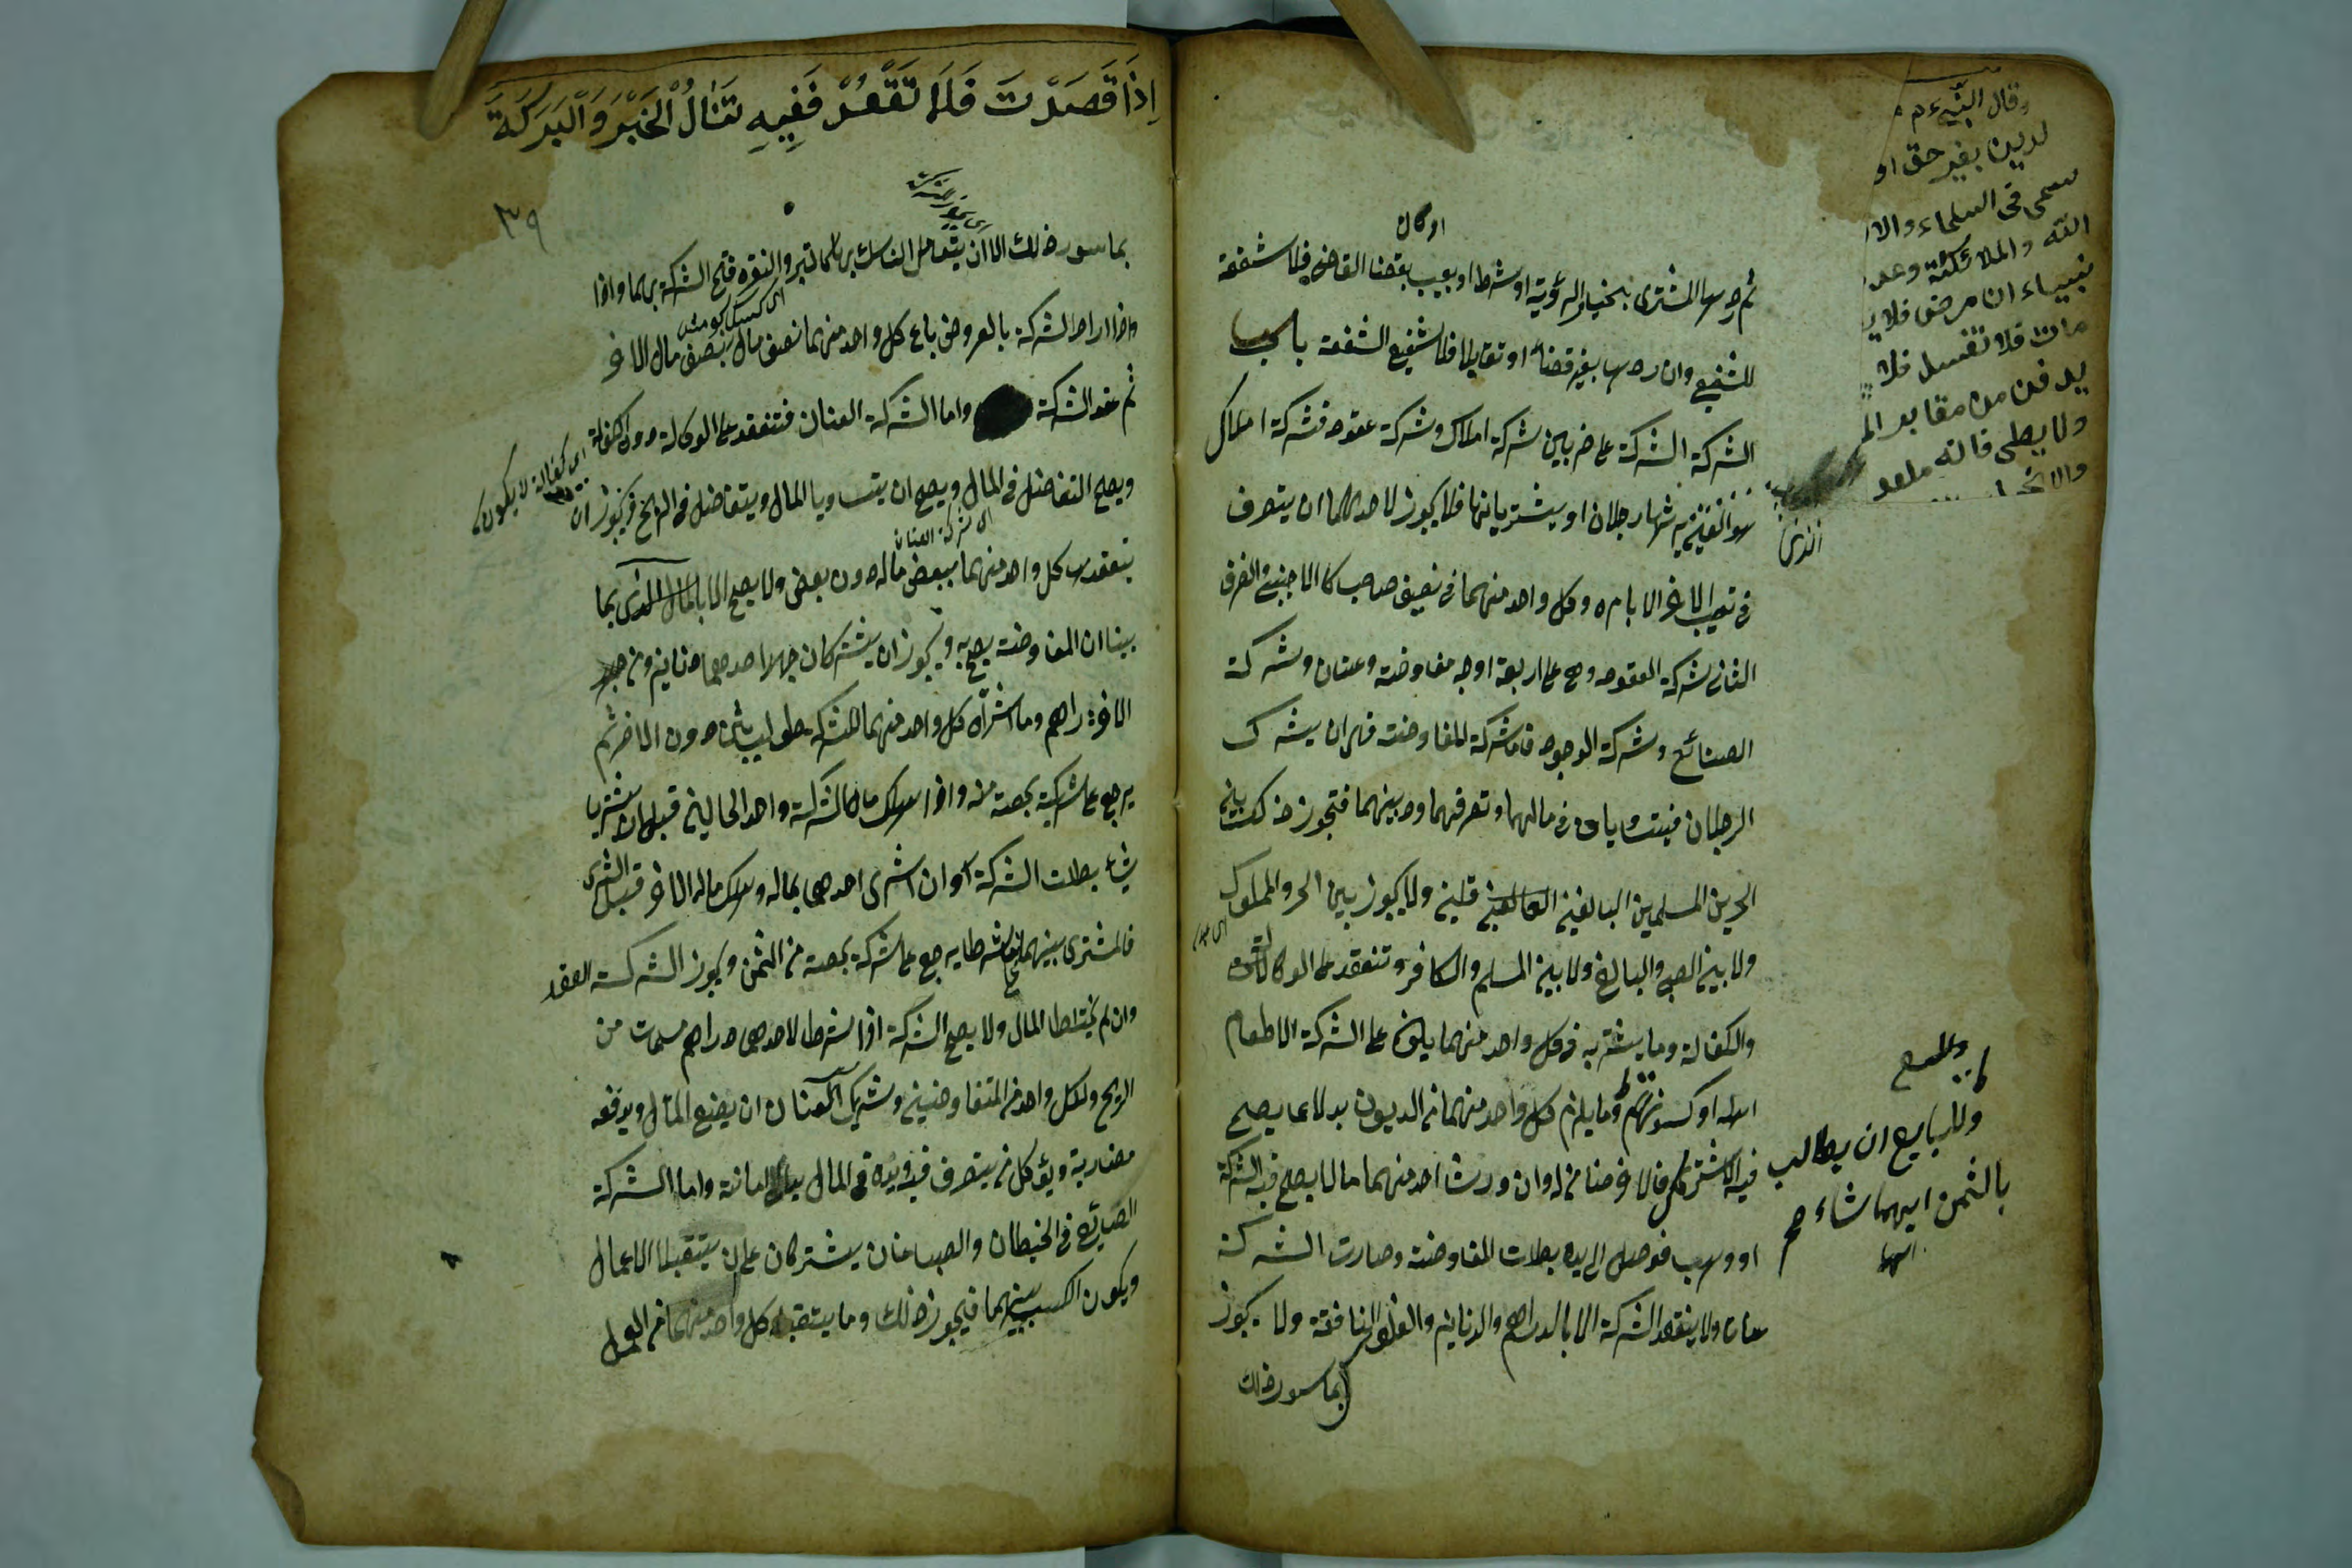 او كان
ثم ردها المشترى بخيار الرؤية او شرط او بعيب بقضا القاضى فلا شفعة
للشفيع وان ردها بغير قضاء او تقايلا فللشفيع الشفعة باب
الشركة الشركة على ضربين شركة املاك وشركة عقود فشركة املاك
رجلان او يشتريانها فلا يجوز لاحدهما ان يتصرف
فى نصيب الاخر الا بامره وكل واحد منهما فى نصيب صاحبه كالاجنبى والضرب
الثانى شركة العقود وهى على اربعة اوجه مفاوضة وعنان وشركة
الصنائع وشركة الوجوه فاما شركة المفاوضة فهى ان يشترك
الرجلان فيتساويان فى مالهما وتصرفهما ودينهما فتجوز ذلك بين
الحرين المسلمين البالغين العاقلين ولا يجوز بين الحر والمملوك
ولا بين الصبى والبالغ ولا بين المسلم والكافر وتنعقد على الوكالة
والكفالة وما يشتريه كل واحد منهما يكون على الشركة الا طعام
اهله او كسوتهم وما يلزم كل واحد منهما من الديون بدلا عما يصح
فيه الاشتراك فالاخر ضامن له وان ورث احد منهما مالا يصح فيه الشركة
او وهب فوصل الى يده بطلت المفاوضة وصارت الشركة
عنانا ولا ينعقد الشركة الا بالدراهم والدنانير والفلوس النافقة ولا يجوز
بما سوى ذلك
وقال النبى ءم
لدين بغير حق او
سمى فى السماء والار
الله والملائكة وعد
نبياء ان مرض فلا ي
مات فلا تغسل فلا
يدفن من مقابر الم
ولا يعطى فانه ملعو
الذى
وللبايع ان يطالب
بالثمن ايهما شاء صح
اِذَا قَصَدْتَ فَلَا تَقْعُدْ فَفِيهِ تَنَالُ الْخَيْرَ وَالْبَرَكَةَ
٣٩
بما سوى ذلك الا ان يتعامل الناس بها كالتبر والنقرة فتصح الشركة بهما واذا
واذا اراد الشركة بالعروض باع كل واحد منهما نصف ماله بنصف مال الاخر
ثم عقد الشركة واما الشركة العنان فتنعقد على الوكالة دون الكفالة
ويصح التفاضل فى المال ويصح ان يتساويا المال ويتفاضلا فى الربح ويجوز ان
اى كفالة لا يكون
اى شركة العنان
يعقدها كل واحد منهما ببعض ماله دون بعض ولا يصح الا بالمال الذى بما
بينا ان المفاوضة يصح به ويجوز ان يشتركان جهة احدهما دنانير ومن جهة
الاخر دراهم وما اشتراه كل واحد منهما للشركة طولب بثمنه دون الاخر ثم
يرجع على شريكه بحصته منه واذا هلك مال الشركة واحد المالين قبل ان يشتريا
شيئا بطلت الشركة وان اشترى احدهما بماله وهلك مال الاخر قبل الشرى
فالمشترى بينهما على ما شرطا يرجع على شركة بحصته من الثمن ويجوز الشركة العقد
وان لم يختلطا المال ولا يصح الشركة اذا اشرطا لاحدهما دراهم مسمات من
الربح ولكل واحد من المتفاوضين وشريك العنان ان يبضع المال ويدفعه
مضاربة ويوكل من يتصرف فيه ويده فى المال يد الامانة واما الشركة
الصنايع فالخياطان والصباغان يشتركان على ان يتقبلا الاعمال
ويكون الكسب بينهما فيجوز ذلك وما يتقبله كل واحد منهما من العمل